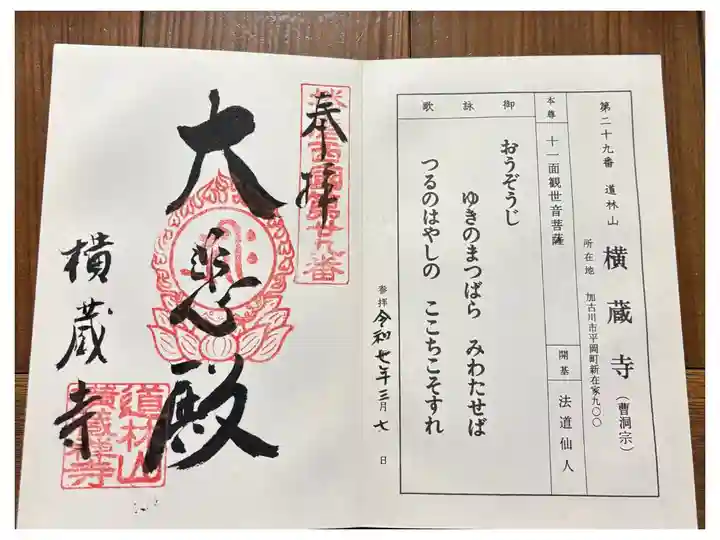 第二十九番 道林山 横蔵寺 (曹洞宗)
所在地 加古川市平岡町新在家九〇〇
本尊 十一面観世音菩薩
開基 法道仙人
御詠歌
おうぞうじ
ゆきのまつばら みわたせば
つるのはやしの ここちこそすれ
参拝 令和 年三月 日
奉拝
播磨西國第廿九番
大悲殿
横蔵寺
道林山
横蔵禅寺